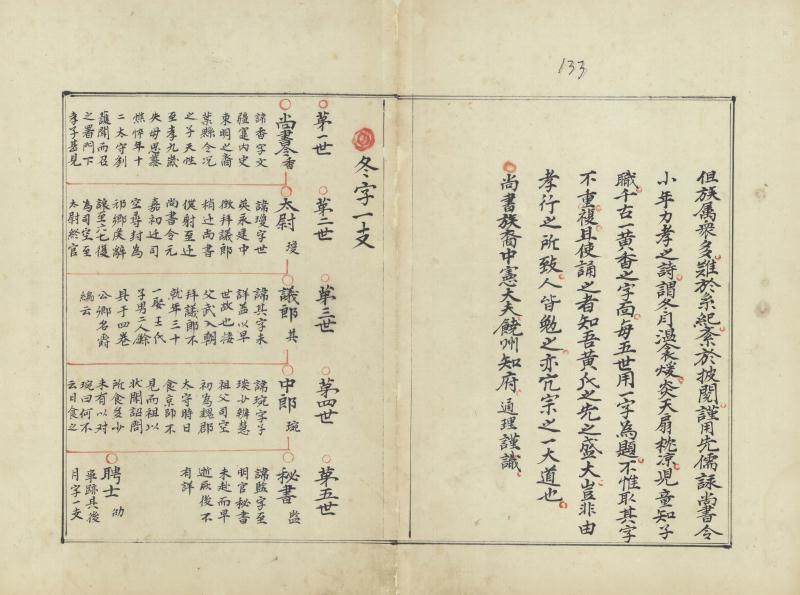 133
但族属衆多難於糸紀紊於披閱謹用先儒詠尚書令
小年力孝之詩謂冬月溫衾煖炎天扇枕凉児童知子
職千古一黄香之字面每五世用一字為題不惟取其字
不重複且使誦之者知吾黄氏之先之盛大豈非由
孝行之所致人皆勉之亦宂宗之一大道也
尚書族裔中憲大夫饒州知府通理謹識
冬字一支
苐一世
尚書令香
諱香字文
疆運内史
東明之裔
葉縣令况
之子天性
至孝九歲
失母思慕
憔悴年十
二太守刘
護聞而召
之署門下
孝子甚見
苐二世
太尉 瓊
諱瓊字世
英永建中
徴拜議郎
稍迁尚書
僕射至迁
尚書令元
嘉初迁司
空尋封為
祁鄉侯辭
讓至六七復
為司空至
太尉終官
苐三世
議郎 其
諱其字未
詳盖以早
世故也接
父武入朝
拜議郎不
就年三十
一娶王氏
子男二人餘
具于四卷
公卿名爵
編云
苐四世
中郎 琬
諱琬字子
琰少辯慧
祖父司空
初為魏郡
太守時日
食京師不
見而祖以
狀聞詔問
所食多少
未有以对
琬曰何不
云日食之
苐五世
秘書 監
諱賍字至
明官秘書
未赴而早
逝厥後不
有詳
聘士 劭
亊跡具後
月字一支